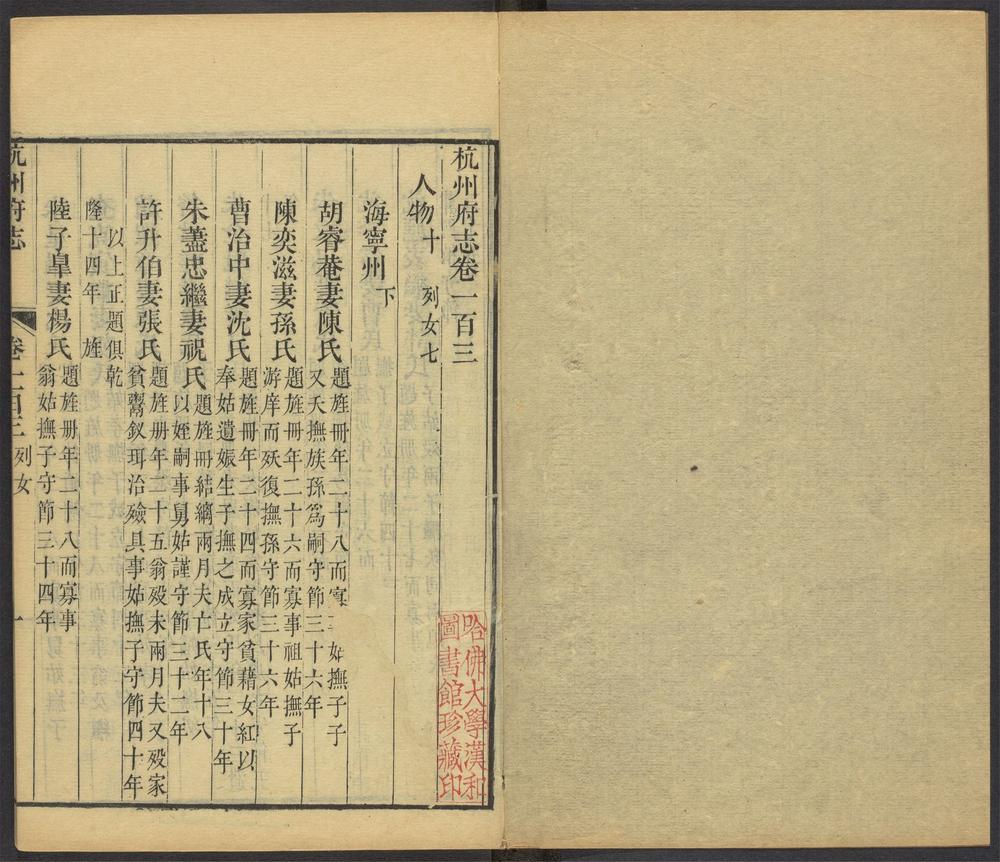 杭州府志卷一百三
人物十 列女七
海寧州下
胡睿菴妻陳氏 題旌冊年二十八而寡 姑撫子子
又夭撫族孫為嗣守節三十六年
陳奕滋妻孫氏 題旌冊年二十六而寡事祖姑撫子
游庠而殀復撫孫守節三十六年
曹治中妻沈氏 題旌冊年二十四而寡家貧藉女紅以
奉姑遺娠生子撫之成立守節三十年
朱藎忠繼妻祝氏 題旌冊結縭兩月夫亡氏年十八
以姪嗣事舅姑謹守節三十二年
許升伯妻張氏 題旌册年二十五翁歿未兩月夫又歿家
貧鬻釵珥治殮具事姑撫子守節四十年
以上正題俱乾
隆十四年 旌
陸子臯妻楊氏 題旌册年二十八而寡事
翁姑撫子守節三十四年
杭州府志 卷一百三 列女 一
哈佛大學漢和
圖書館珍藏印